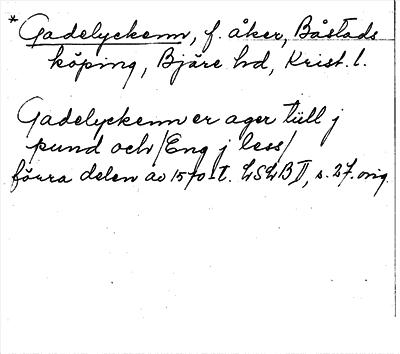 * Gadelyckenn, f. åker, Båstads
köping, Bjäre hd, Krist. l.
Gadelyckenn er ager tiill j
pund och /Eng j less/
förra delen av 1570-t. LSLB II, s. 27. orig.